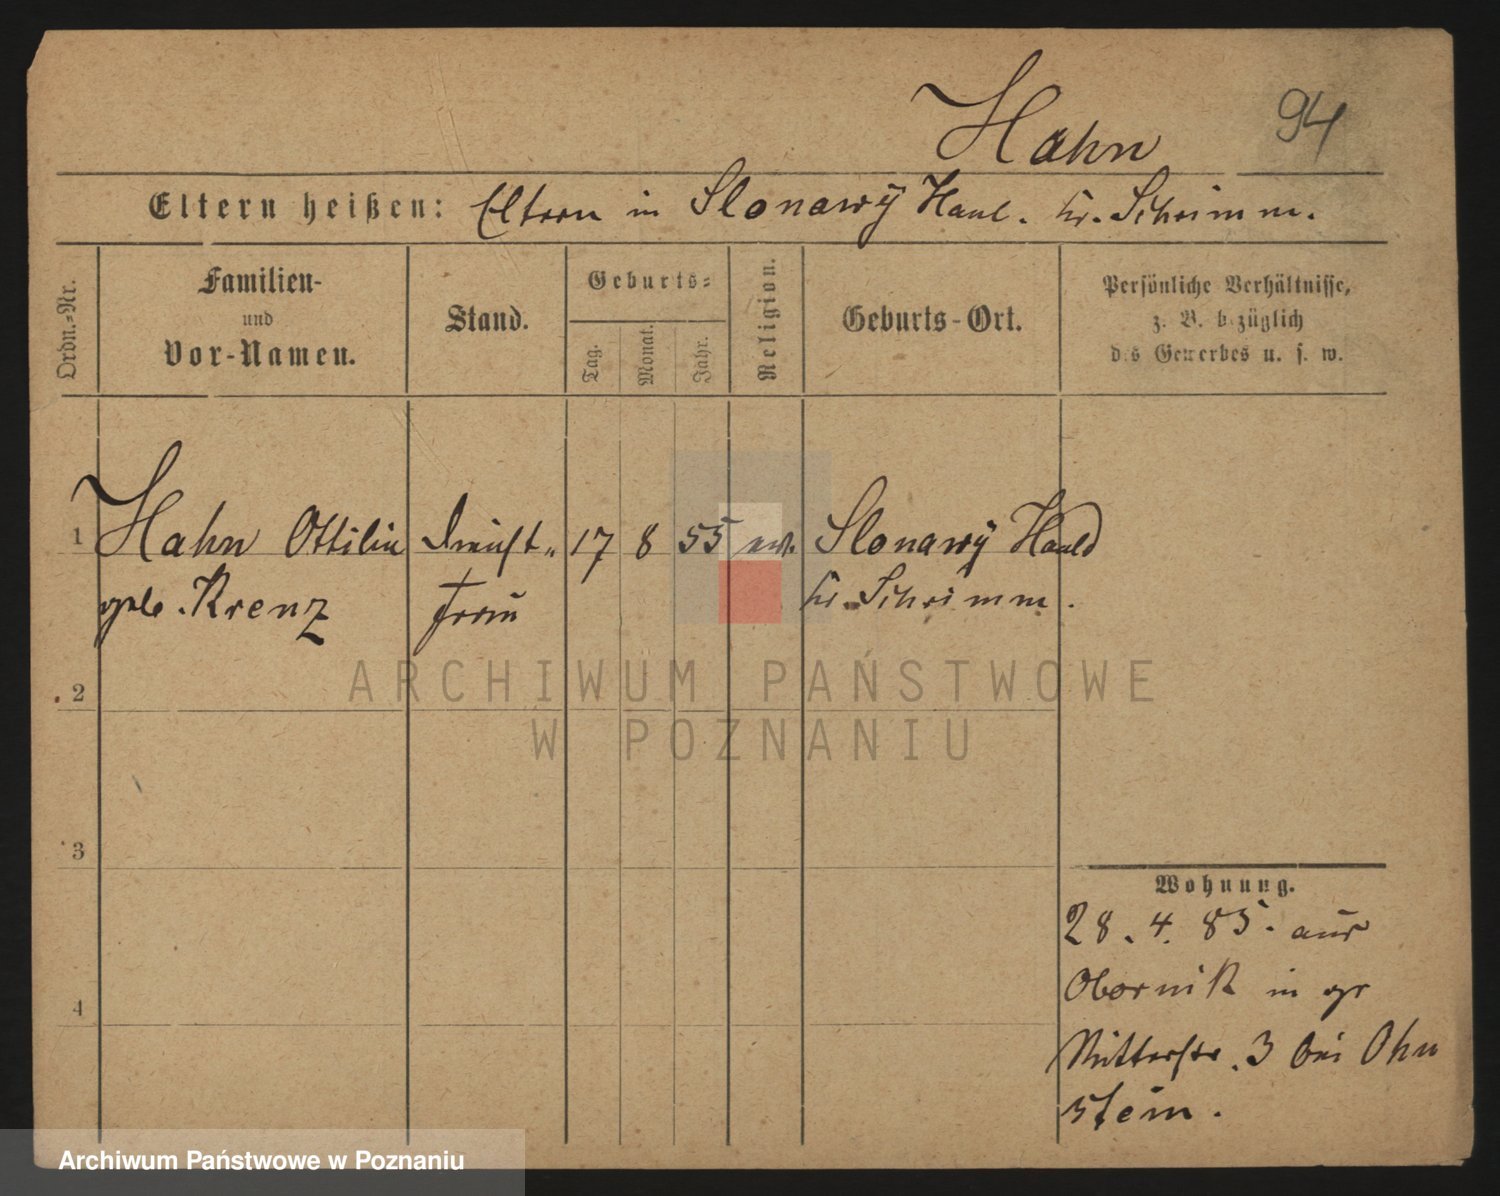 Hahn 94
Eltern heißen: Eltern in Slonawÿ Haul. Kr. Schrimm.
Ordn.-Nr.
Familien-
und
Vor-Namen.
Stand.
Geburts-
Tag.
Monat.
Jahr.
Religion.
Geburts-Ort.
Persönliche Verhältnisse,
z. B. bezüglich
des Gewerbes u. s. w.
1 Hahn Ottilie Dienst- 17 8 55 ev. Slonawÿ Hauld
geb. Krenz frau Kr. Schrimm.
2
3
4
Wohnung.
28. 4. 85. aus
Obornik in gr
Ritterstr. 3 bei Ohn
stein.
ARCHIWUM PAŃSTWOWE
W POZNANIU
Archiwum Państwowe w Poznaniu